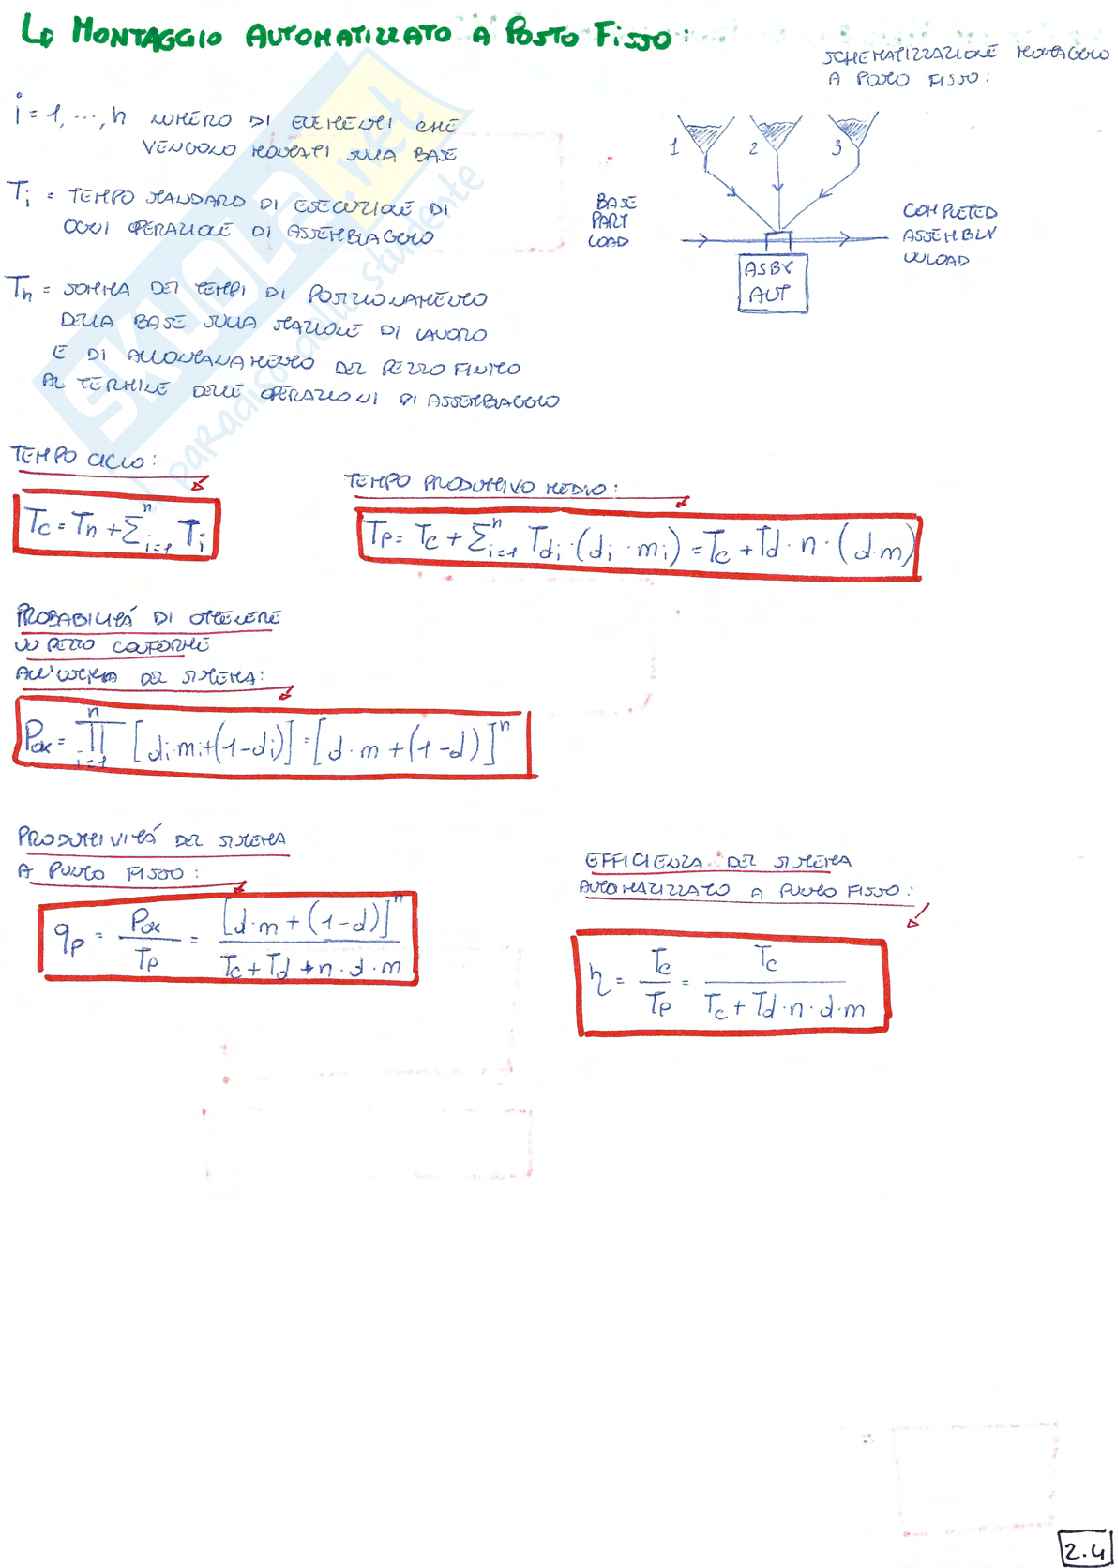 Lo MONTAGGIO AUTOMATIZZATO A POSTO FISSO:
SCHEMATIZZAZIONE MONTAGGIO
A POSTO FISSO:
i = 1, ..., n NUMERO DI ELEMENTI CHE
VENGONO MONTATI SULLA BASE
Ti = TEMPO STANDARD DI ESECUZIONE DI
OGNI OPERAZIONE DI ASSEMBLAGGIO
Th = SOMMA DEI TEMPI DI POSIZIONAMENTO
DELLA BASE SULLA STAZIONE DI LAVORO
E DI ALLONTANAMENTO DEL PEZZO FINITO
AL TERMINE DELLE OPERAZIONI DI ASSEMBLAGGIO
1 2 3
BASE
PART
LOAD
COMPLETED
ASSEMBLY
UNLOAD
ASBY
AUT
SKUOLA.net
il paradiso dello studente
TEMPO CICLO:
Tc = Th + Σ_{i=1}^{n} Ti
TEMPO PRODUTTIVO MEDIO:
Tp = Tc + Σ_{i=1}^{n} Tdi · (di · mi) = Tc + Td · n · (d·m)
PROBABILITÁ DI OTTENERE
UN PEZZO CONFORME
ALL'USCITA DEL SISTEMA:
Pok = Π_{i=1}^{n} [di·mi+(1-di)] = [d·m+(1-d)]^n
PRODUTTIVITÁ DEL SISTEMA
A PUNTO FISSO:
qp = Pok/Tp = [d·m+(1-d)]^n / Tc+Td+n·d·m
EFFICIENZA DEL SISTEMA
AUTOMATIZZATO A PUNTO FISSO:
η = Tc/Tp = Tc / Tc+Td·n·d·m
2.4